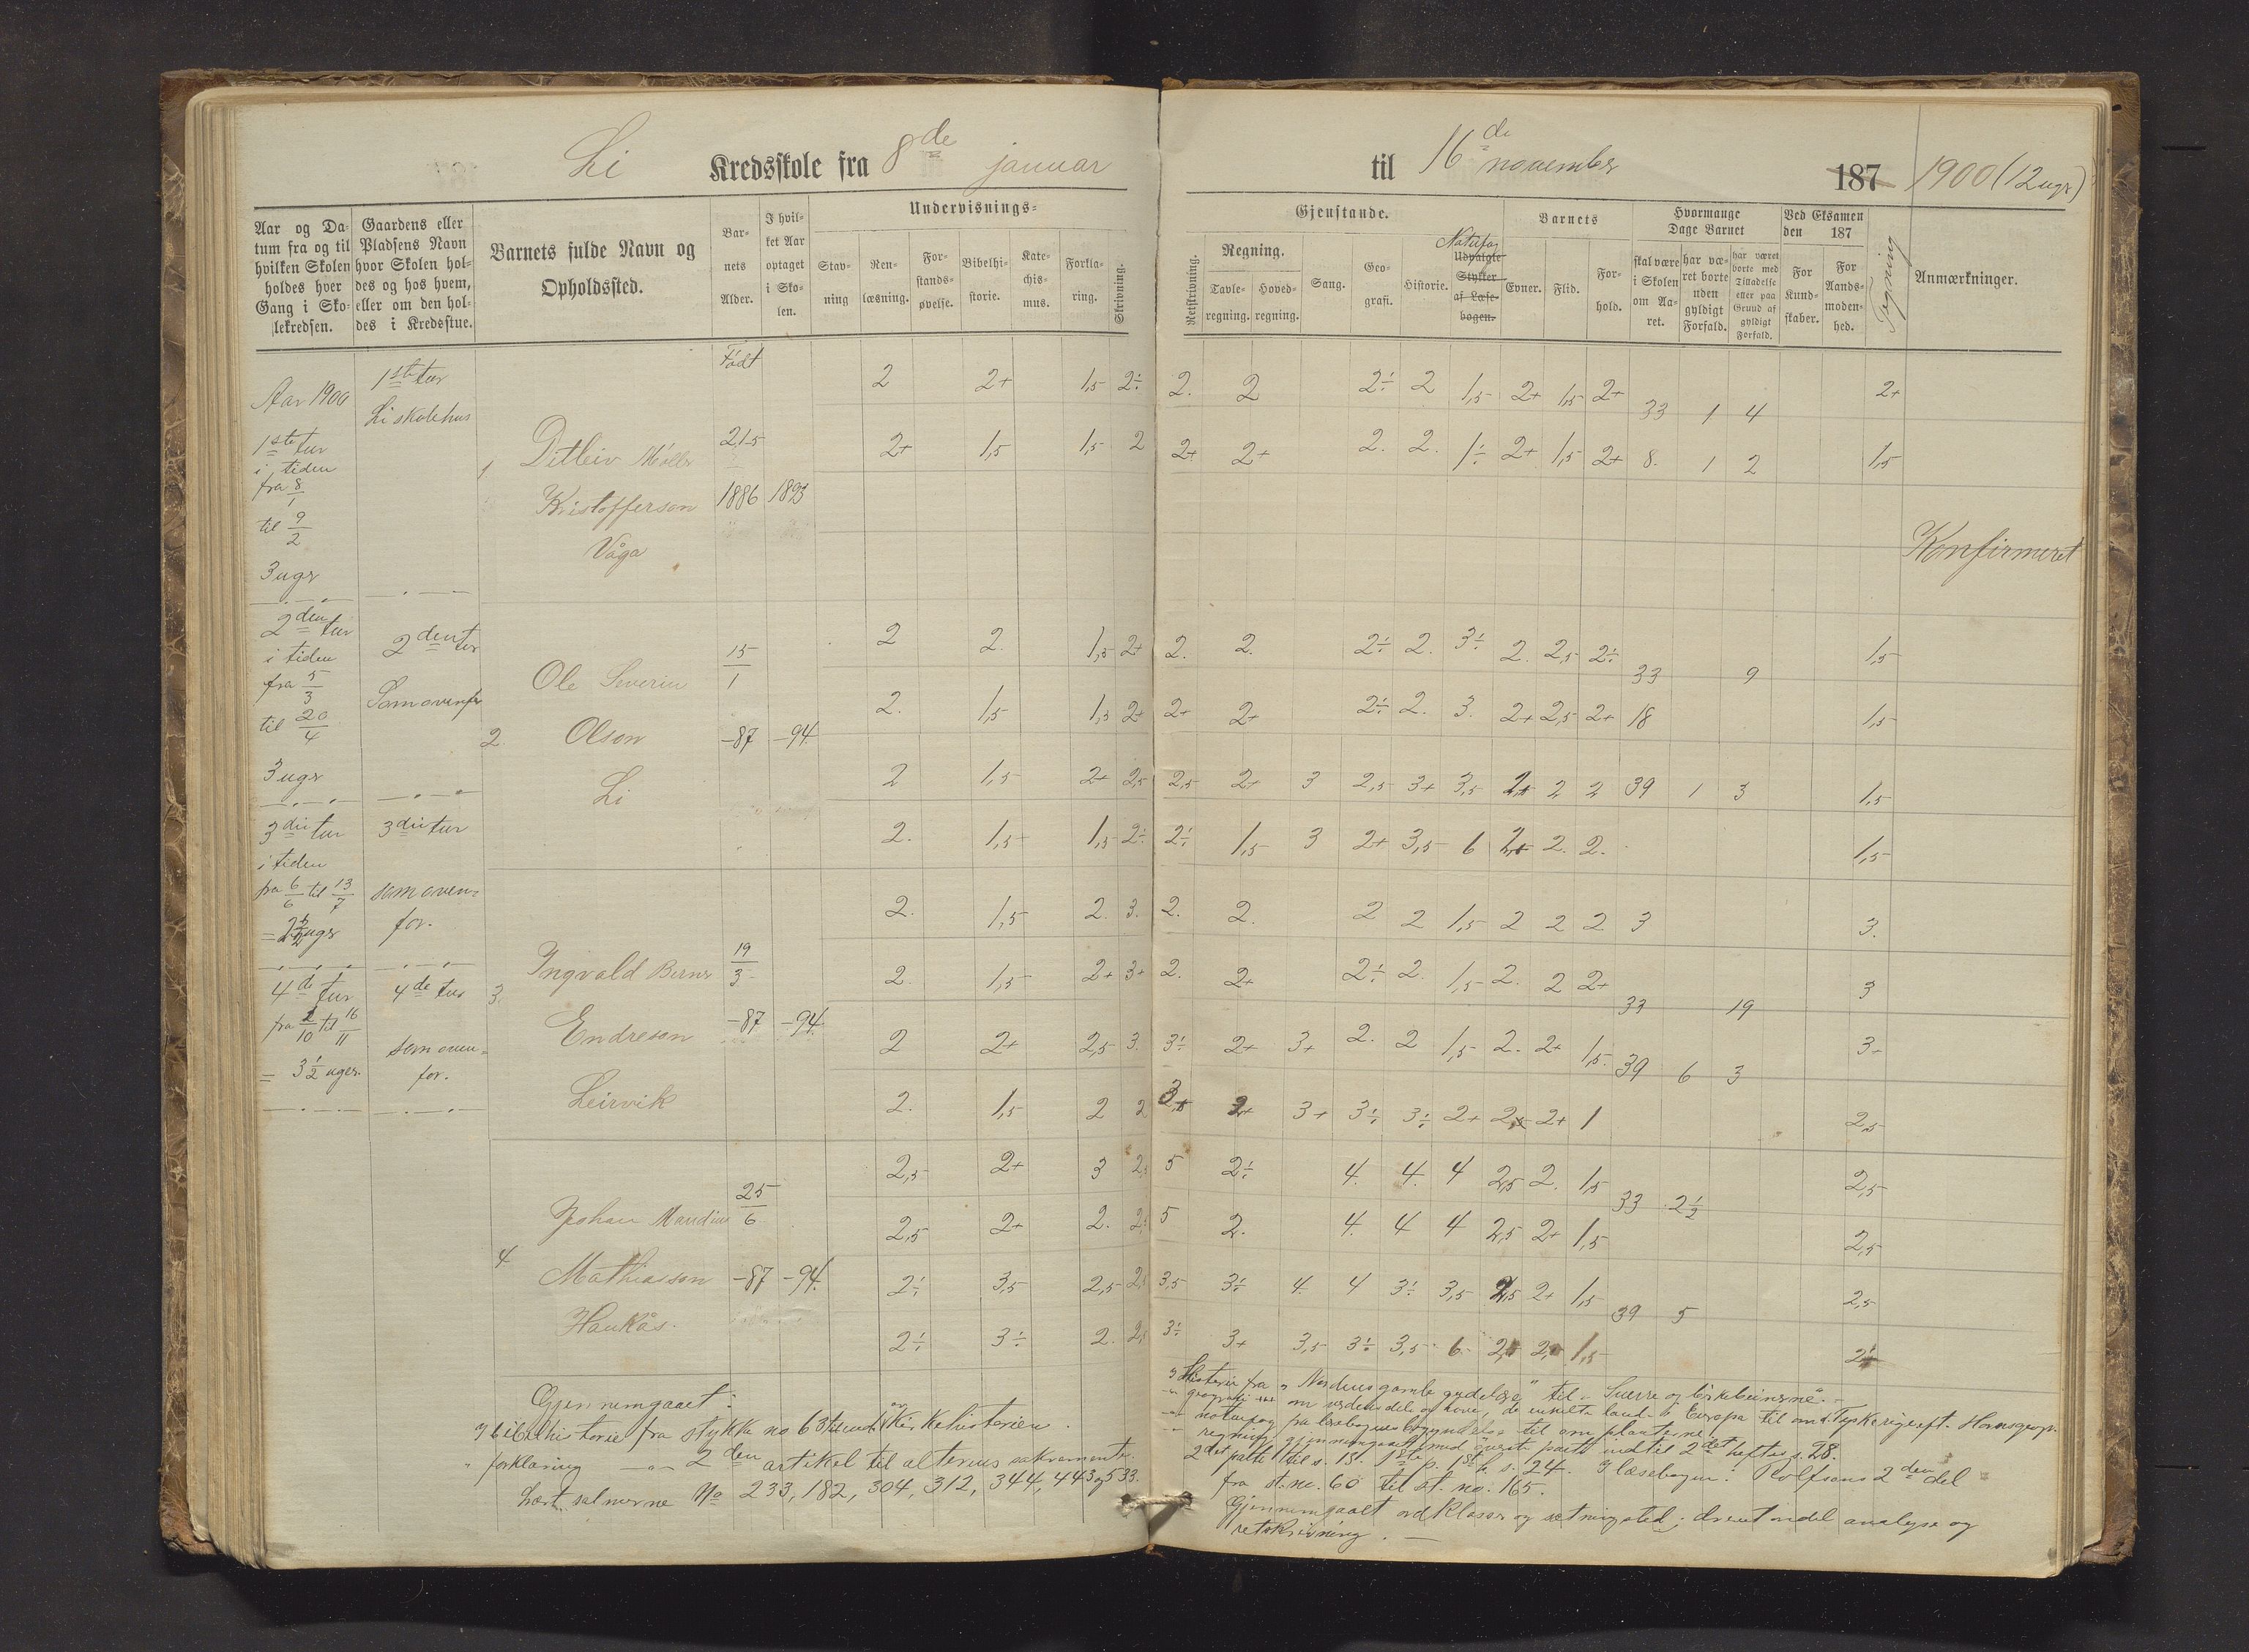 Li Kredsskole fra 8de januar
til 16de november 187 1900 (12 ugr)
Aar og Da-
tum fra og til
hvilken Skolen
holdes hver
Gang i Sko-
lekredsen.
Gaardens eller
Pladsens Navn
hvor Skolen hol-
des og hos hvem,
eller om den hol-
des i Kredsstue.
Barnets fulde Navn og
Opholdssted.
Bar-
nets
Alder.
I hvil-
ket Aar
optaget
i Sko-
len.
Undervisnings-
Stav-
ning
Ren-
læsning.
For-
stands-
øvelse.
Bibelhi-
storie.
Kate-
chis-
mus.
Forkla-
ring.
Skrivning.
Gjenstande.
Retskrivning.
Regning.
Tavle-
regning.
Hoved-
regning.
Sang.
Geo-
grafi.
Historie.
Naturfag
Udvalgte
Stykker
af Læse-
bogen.
Barnets
Evner.
Flid.
For-
hold.
Hvormange
Dage Barnet
skal være
i Skolen
om Aa-
ret.
har væ-
ret borte
uden
gyldigt
Forfald.
har været
borte med
Tilladelse
eller paa
Grund af
gyldigt
Forfald.
Ved Eksamen
den 187
For
Kund-
skaber.
For
Aands-
moden-
hed.
Tegning
Anmærkninger.
Aar 1900
1ste tur
i tiden
fra 8/1
til 9/2
3 ugr
2den tur
i tiden
fra 5/3
til 20/4
3 ugr
3die tur
i tiden
fra 6/6 til 13/7
ugr
4de tur
fra 2/10 til 16/11
= 3 1/2 uger.
1ste tur
Li skolehus
2den tur
Som ovenfor
3die tur
som oven-
for.
4de tur
som oven-
for.
Født
1 Ditleiv Møller 21-5
Kristofferson 1886 1893
Våga
2 2+ 1,5 2÷ 2. 2 2÷ 2 1,5 2+ 1,5 2+ 33 1 4 2+
2+ 1,5 1,5 2 2+ 2+ 2. 2. 1÷ 2+ 1,5 2+ 8. 1 2 1,5
Konfirmeret
Ole Severin 15/1
2. Olson -87 -94.
Li
2 2. 1,5 2+ 2. 2. 2÷ 2. 3÷ 2. 2,5 2÷ 33 9 1,5
2. 1,5 1,5 2+ 2+ 2+ 2÷ 2. 3. 2+ 2,5 2+ 18 1,5
2 1,5 2+ 2,5 2,5 2+ 3 2,5 3+ 3,5 2 2 39 1 3 1,5
2. 1,5 1,5 2÷ 2÷ 1,5 3 2+ 3,5 6 2. 2. 1,5
Ingvald Berner 19/3
3. Endreson -87 -94.
Leirvik
2. 1,5 2. 3. 2. 2. 2 2 1,5 2 2 2 3 3.
2. 1,5 2+ 3+ 2. 2+ 2÷ 2. 1,5 2. 2 2+ 33 19 3
2 2+ 2,5 3. 3÷ 2+ 3+ 2. 2 1,5 2. 2+ 1,5 39 6 3 3+
2. 1,5 2 2 3+ 3÷ 3÷ 2+ 2+ 1 2,5
Johan Mandius 25/6
4. Mathiasson -87 -94.
Haukås.
2,5 2+ 3 5 2÷ 4. 4. 4 2,5 2. 1,5 33 2 1/2 2,5
2,5 2+ 2. 5 2. 4. 4 4 2,5 2+ 1,5 2,5
2÷ 3,5 2,5 3,5 3÷ 4. 4 3÷ 3,5 2,5 2+ 1,5 39 5 2,5
2÷ 3÷ 2. 3÷ 3+ 3,5 3÷ 3,5 6 1,5
Gjennemgaaet:
I bibelhistorie fra stykke no 63 til ud og Kirkehistorien.
" forklaring 2den artikel til alterens sakramente.
Lært salmerne No 233, 182, 304, 312, 344, 443 og 533.
I Historie fra "Nordens gamle gudelære" til "Sverre og birkebeinerne".
geografi om verdensdele og have, de enkelte lande i Europa til om d. Tyske rige
naturfag fra læsebogens begyndelse til om planterne
regning gjennemgaaet med øverste parti indtil 2det heftes s. 28.
2det parti til s. 13. 1ste p. 1st h. s. 24. I læsebogen: Rolfsens 2den del
fra st. no. 60 til st. no. 165.
Gjennemgaaet ordklasser og sætningsled; drevet endel analyse og
retskrivning.